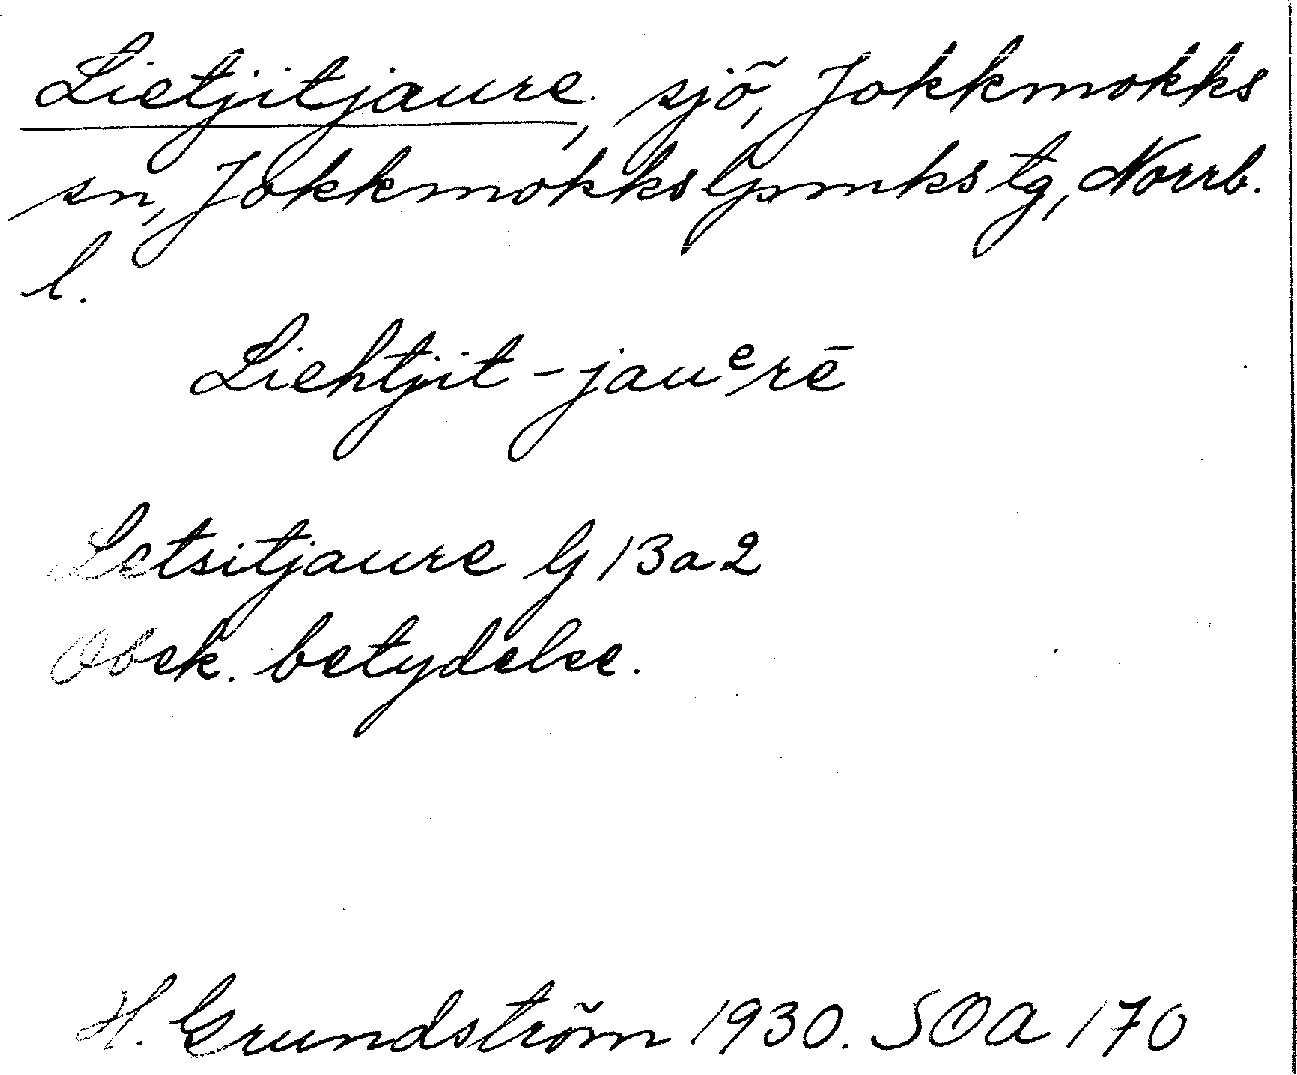 Lietjitjaure, sjö, Jokkmokks
sn, Jokkmokks lpmks tg, Norrb.
l.
Liehtjit-jauᵉrē
Letsitjaure G 13a2
Obek. betydelse.
H. Grundström 1930. SOA 170